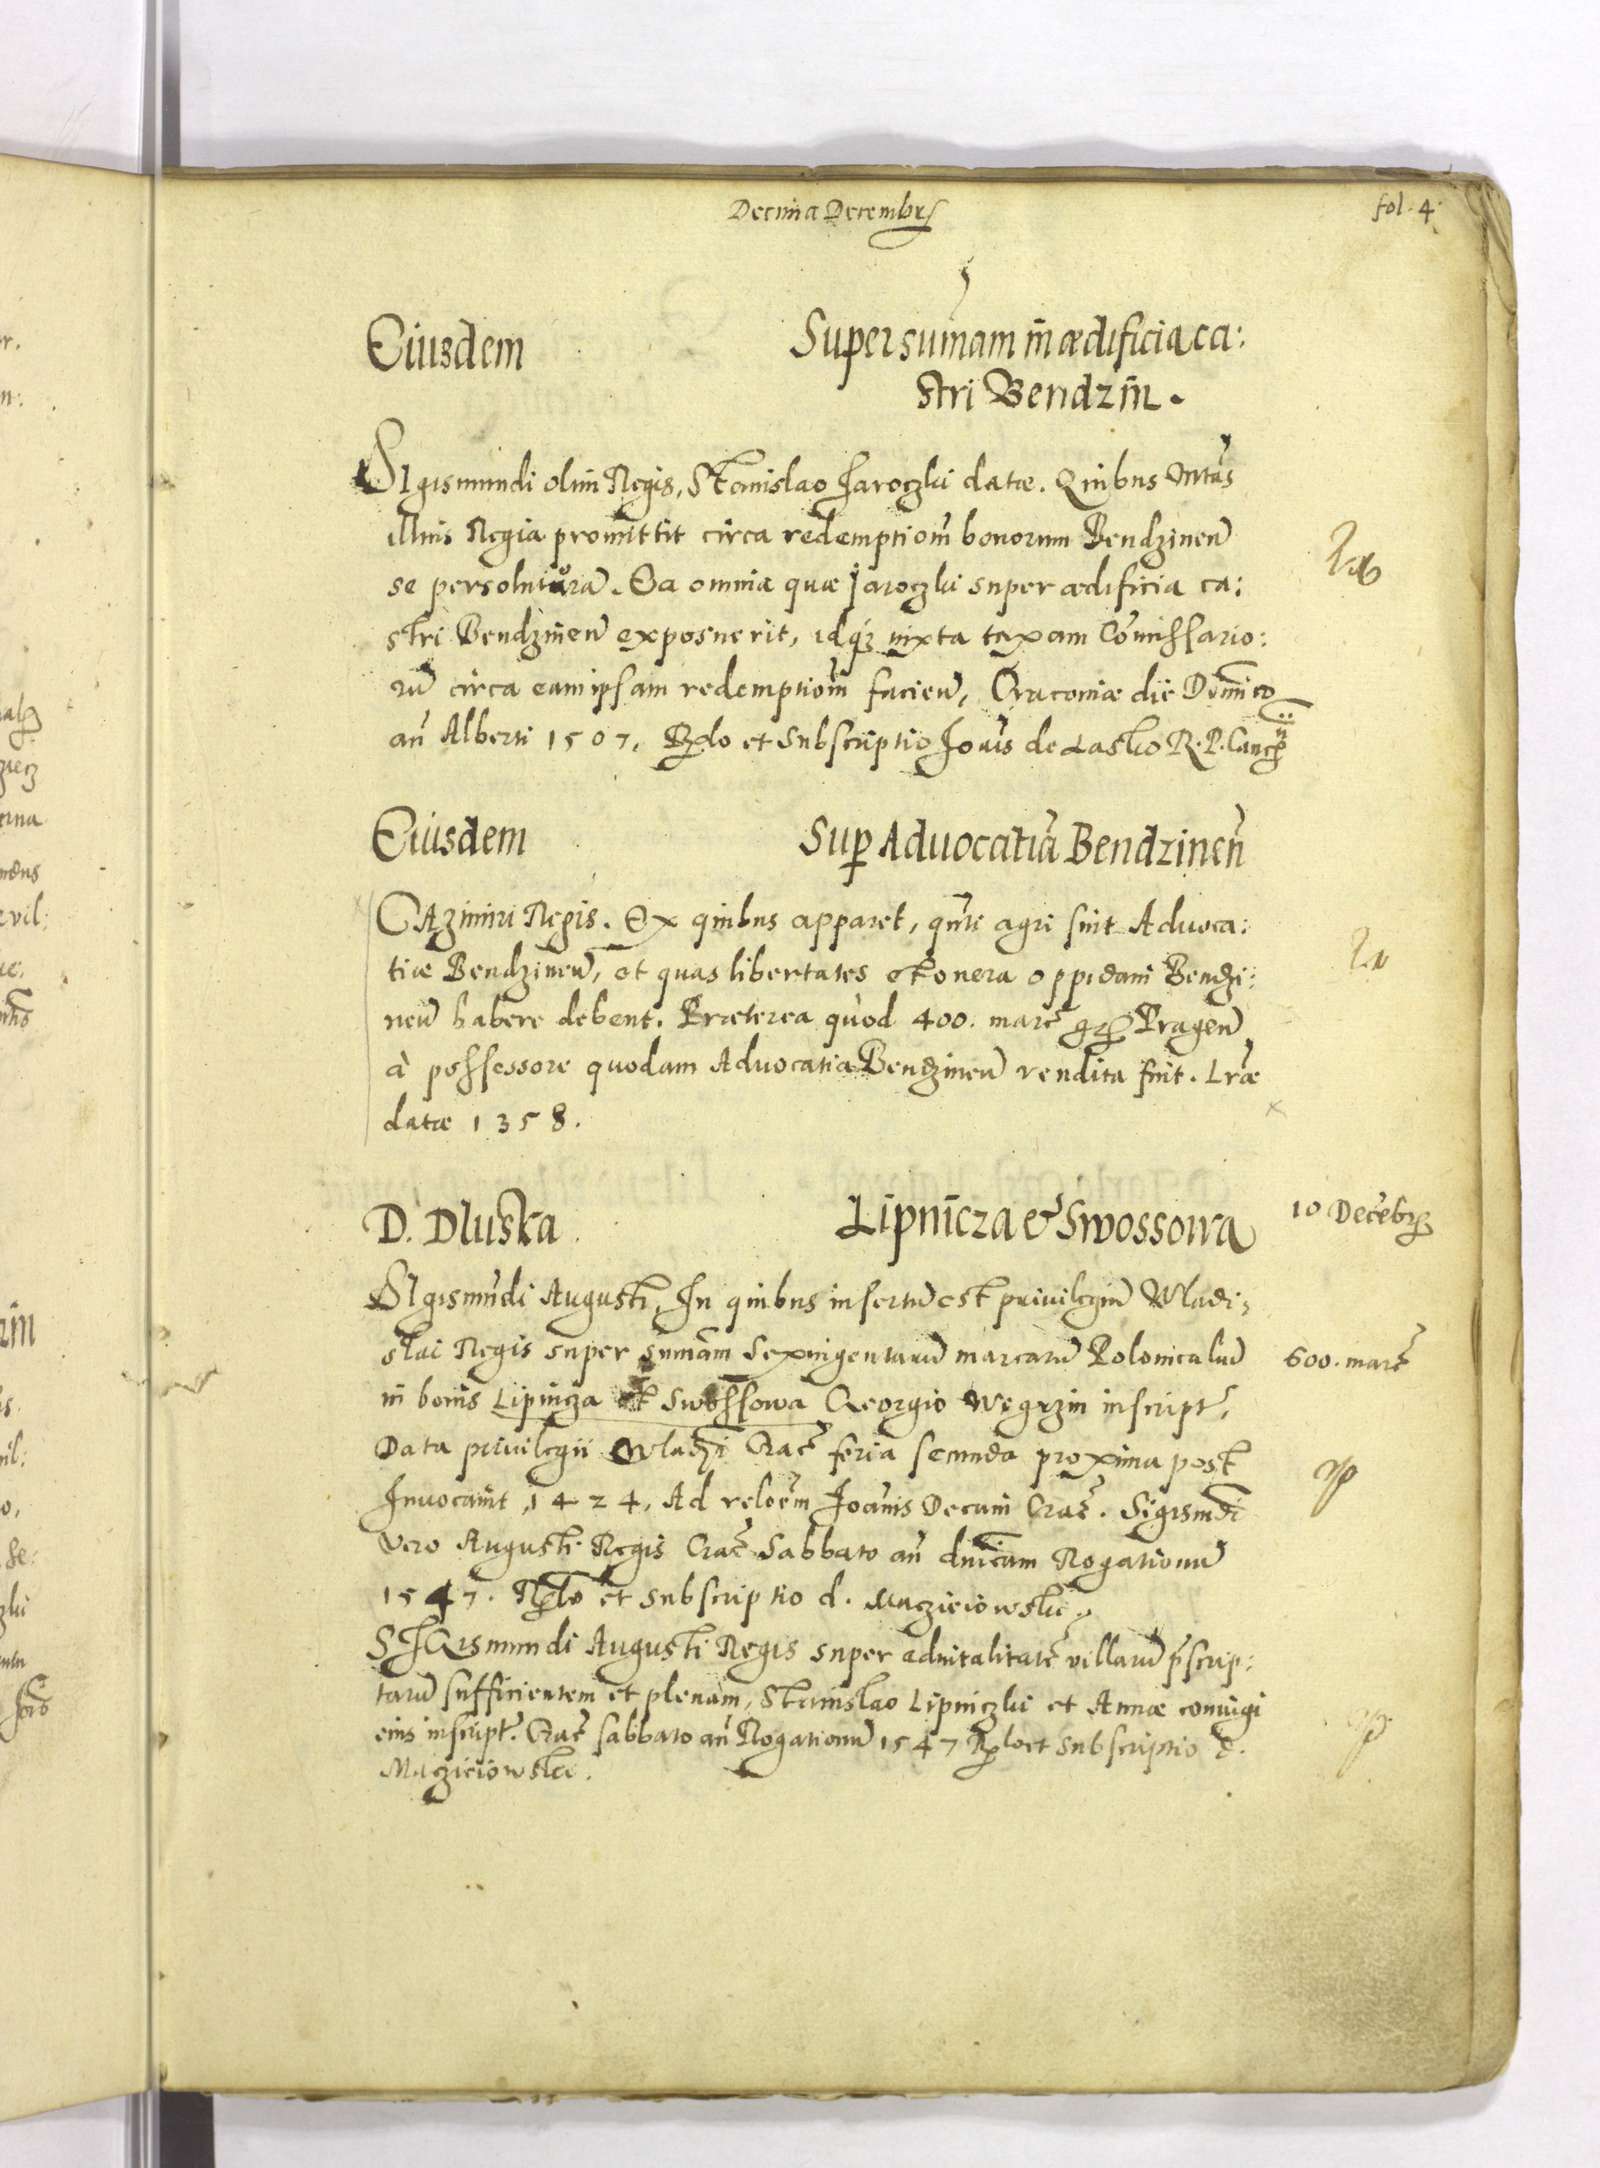 Decima Decembrꝭ
fol. 4.
Eiusdem
Super sum̄am in ædificia ca:
stri Bendzin̄.
SIgismundi olim Regis, Stanislao Jaroczki datæ. Quibus Mtas
illius Regia promittit circa redemption̄ bonorum Bendzinen̄
se persoluturam̄. Ea omnia quæ Jaroczki super ædificia ca:
stri Bendzinen̄ exposuerit, idq́; iuxta taxam Com̄issario:
rum̄ circa eam ipsam redemption̄ facien̄, Cracouiæ die Dominico
an̄ Alberti 1507, Rel̄o et Subscriptio Joan̄is de Lasko R. P. Cancel̄
Eiusdem
Sup Aduocatiā Bendzinen̄
CAzimiri Regis. Ex quibus apparet, quōt agri sint Aduoca:
tiæ Bendzinen̄, et quas libertates et onera oppidani Bendzi:
nen̄ habere debent. Præterea quod 400. marc̄ gꝛ Pragen̄
à possessore quodam Aduocatia Bendzinen̄ vendita fuit. Lr̄æ
datæ 1358.
D. Dluska
Lipnicza & Swossowa
10 Decēbrꝭ
SIgismūdi Augusti, In quibus insertū est priuilegiū Wladi:
slai Regis super sum̄am Sexingentarū marcarū Polonicaliū
600. marc̄
in bonis Lipnicza et Swossowa Georgio Węgrzin inscript̄,
Data priuilegii Wladzi Crac̄ feria secunda proxima post
Inuocauit, 1424, Ad reloēm Joan̄is Decani Crac̄. Sigismūdi
vero Augusti Regis Crac̄ Sabbato an̄ dn̄icam Rogationū
1547. Rel̄o et subscriptio d. Macziciowski.
SIGismundi Augusti Regis super aduitalitatē villarū p̄scrip:
tarū sufficientem et plenam, Stanislao Lipniczki et Annæ coniugi
eius inscript̄. Crac̄ sabbato an̄ Rogationū 1547 Rel̄o et subscriptio d.
Macziciowski.